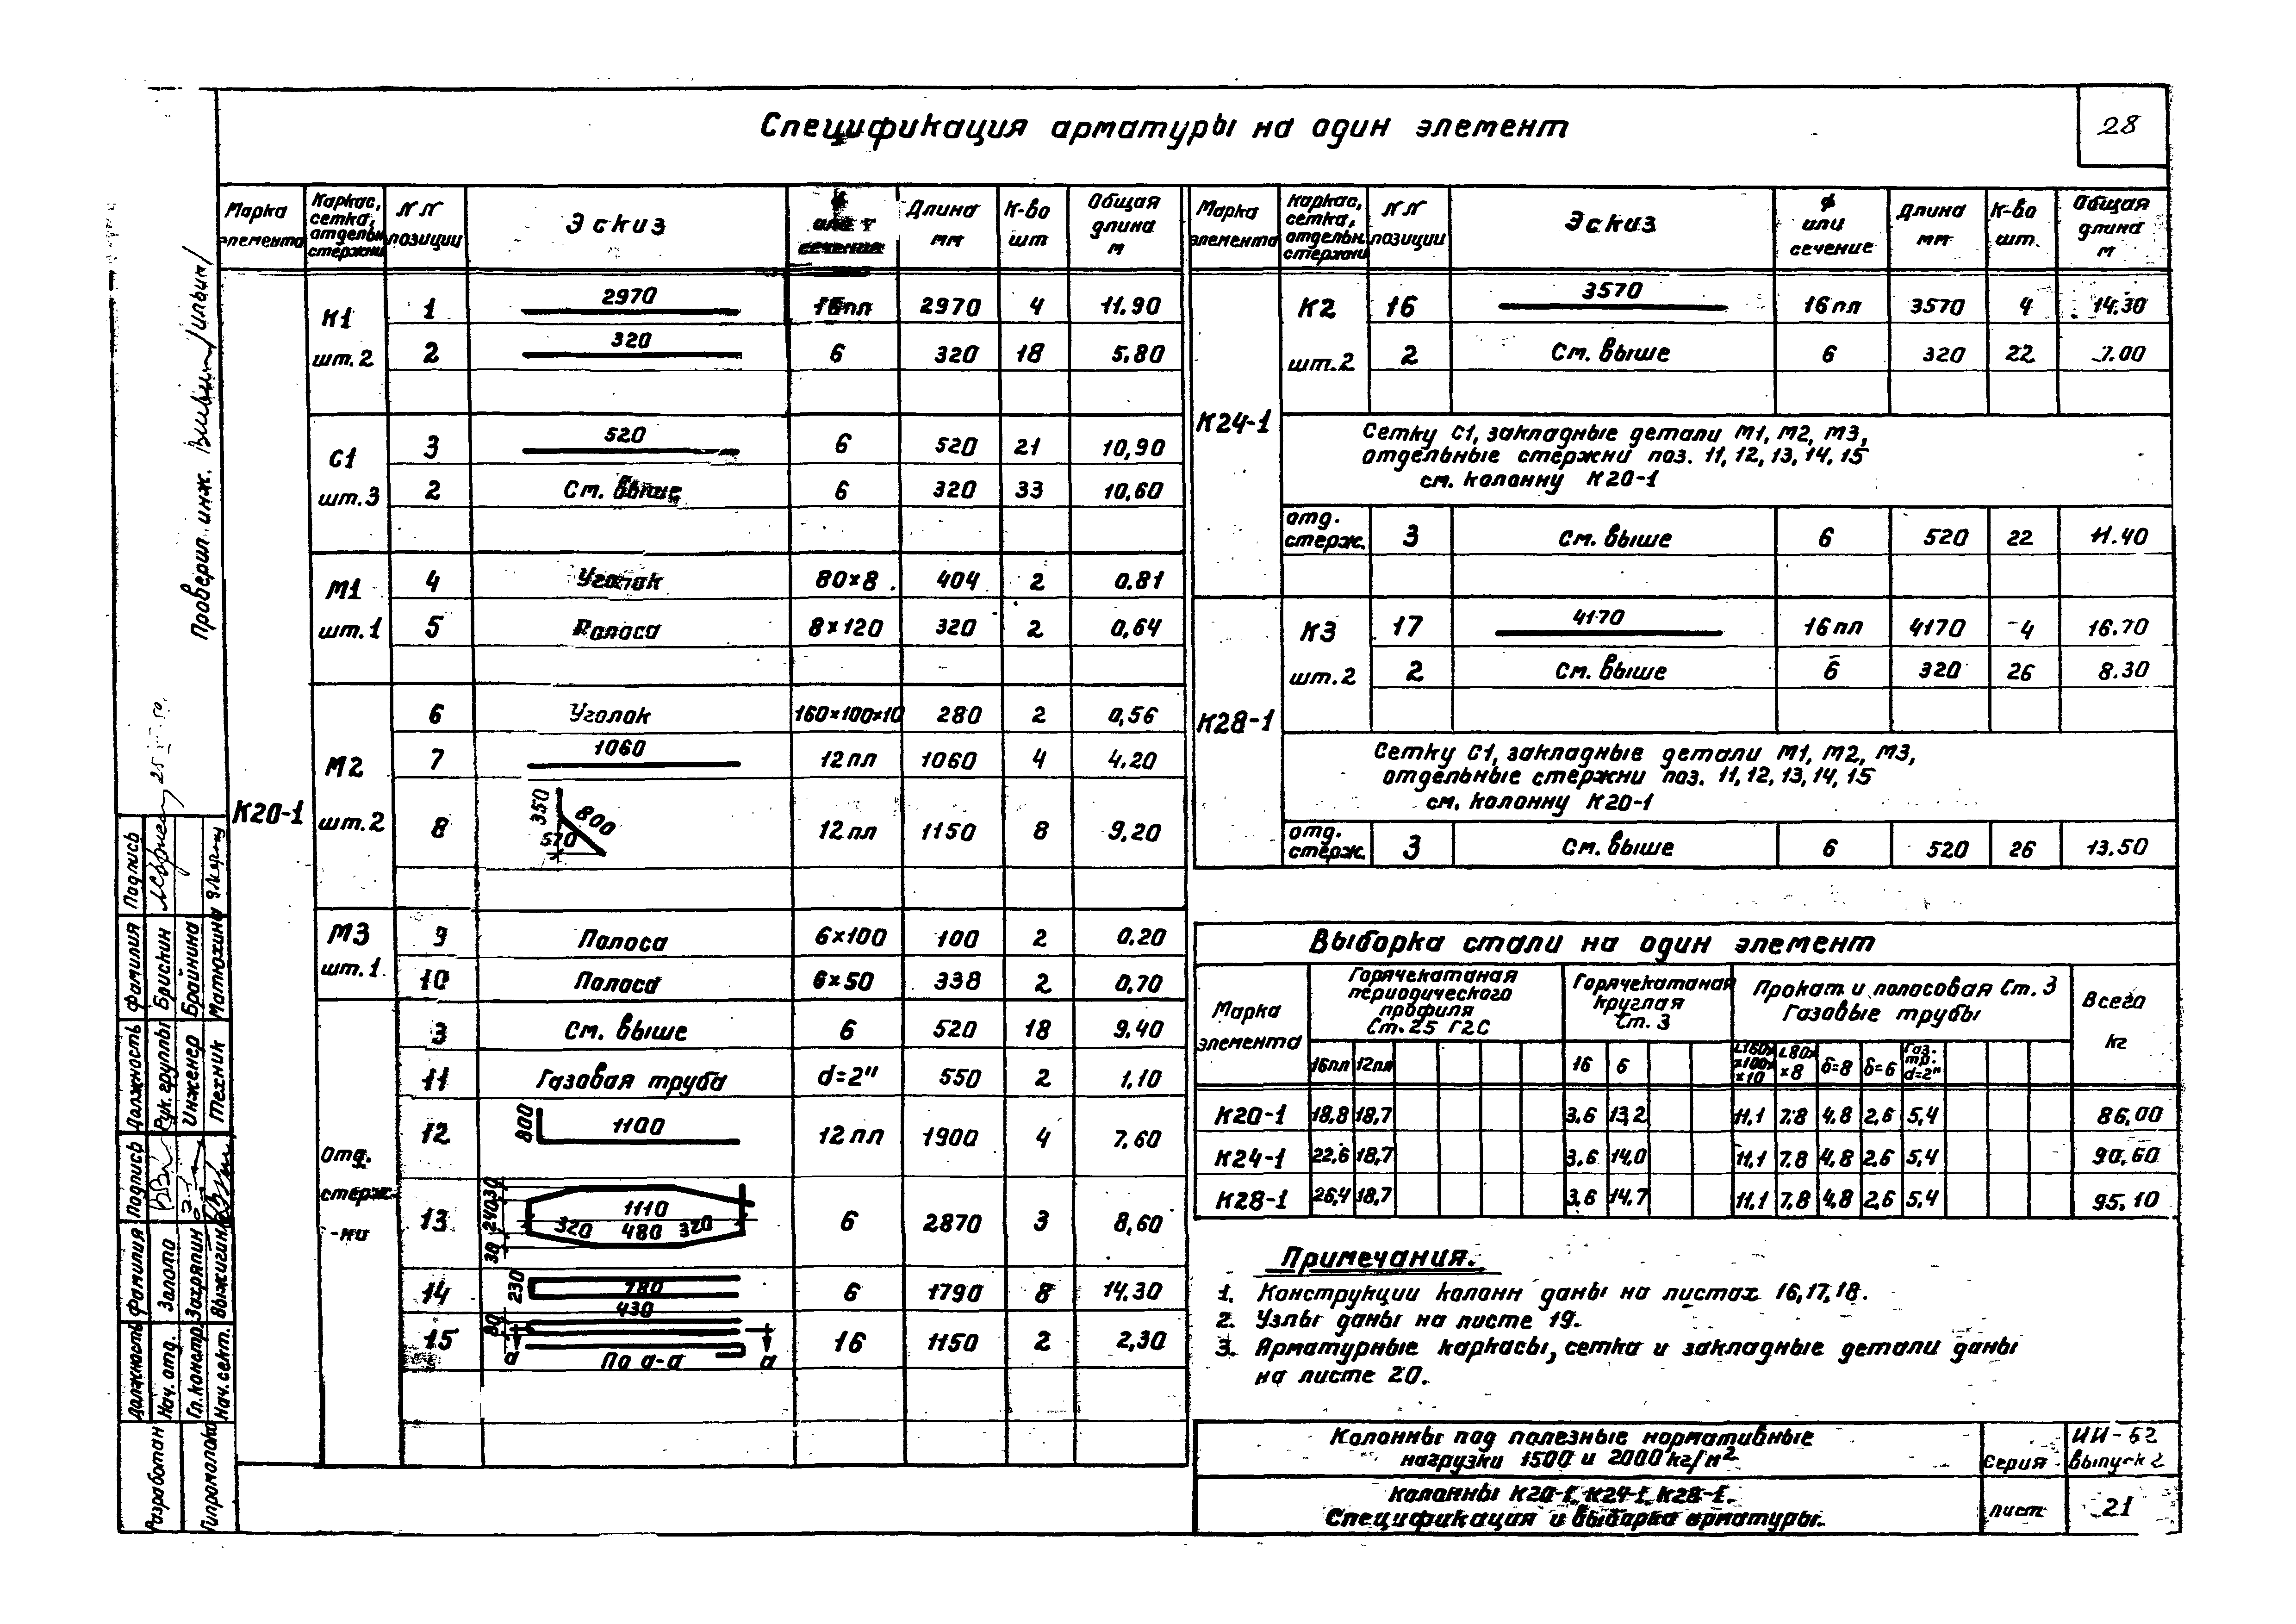 28
Спецификация арматуры на один элемент
Марка элемента | Каркас, сетка, отдельн. стержни | NN позиции | Эскиз | ф или сечение | Длина мм | К-во шт | Общая длина м
К20-1
К1 шт.2 | 1 | 2970 | 16пл | 2970 | 4 | 11.90
2 | 320 | 6 | 320 | 18 | 5.80
С1 шт.3 | 3 | 520 | 6 | 520 | 21 | 10,90
2 | См. выше | 6 | 320 | 33 | 10,60
М1 шт.1 | 4 | Уголок | 80×8 | 404 | 2 | 0.81
5 | Полоса | 8×120 | 320 | 2 | 0,64
М2 шт.2 | 6 | Уголок | 160×100×10 | 280 | 2 | 0,56
7 | 1060 | 12пл | 1060 | 4 | 4.20
8 | 350 800 570 | 12пл | 1150 | 8 | 9.20
М3 шт.1 | 9 | Полоса | 6×100 | 100 | 2 | 0.20
10 | Полоса | 6×50 | 338 | 2 | 0,70
Отд. стерж-ни | 3 | См. выше | 6 | 520 | 18 | 9.40
11 | Газовая труба | d=2" | 550 | 2 | 1,10
12 | 800 1100 | 12пл | 1900 | 4 | 7.60
13 | 30 240 30 1110 320 480 320 | 6 | 2870 | 3 | 8,60
14 | 230 780 | 6 | 1790 | 8 | 14.30
15 | 80 430 а а По а-а | 16 | 1150 | 2 | 2,30
Марка элемента | Каркас, сетка, отдельн. стержни | NN позиции | Эскиз | ф или сечение | Длина мм | К-во шт. | Общая длина м
К24-1
К2 шт.2 | 16 | 3570 | 16пл | 3570 | 4 | 14.30
2 | См. выше | 6 | 320 | 22 | 7.00
Сетку С1, закладные детали М1, М2, М3,
отдельные стержни поз. 11, 12, 13, 14, 15
см. колонну К20-1
отд. стерж. | 3 | См. выше | 6 | 520 | 22 | 11.40
К28-1
К3 шт.2 | 17 | 4170 | 16пл | 4170 | 4 | 16.70
2 | См. выше | 6 | 320 | 26 | 8.30
Сетку С1, закладные детали М1, М2, М3,
отдельные стержни поз. 11, 12, 13, 14, 15
см. колонну К20-1
отд. стерж. | 3 | См. выше | 6 | 520 | 26 | 13.50
Выборка стали на один элемент
Марка элемента | Горячекатаная периодического профиля Ст. 25 Г2С | Горячекатаная круглая Ст. 3 | Прокат и полосовая Ст. 3 Газовые трубы | Всего кг
16пл | 12пл | 16 | 6 | L160××100××10 | L80××8 | δ=8 | δ=6 | Газ. тр. d=2"
К20-1 | 18.8 | 18,7 | 3.6 | 13,2 | 11.1 | 7.8 | 4.8 | 2,6 | 5,4 | 86,00
К24-1 | 22,6 | 18,7 | 3.6 | 14,0 | 11.1 | 7.8 | 4,8 | 2,6 | 5,4 | 90,60
К28-1 | 26,4 | 18,7 | 3,6 | 14,7 | 11.1 | 7,8 | 4,8 | 2,6 | 5,4 | 95,10
Примечания.
1. Конструкции колонн даны на листах 16, 17, 18.
2. Узлы даны на листе 19.
3. Арматурные каркасы, сетка и закладные детали даны
на листе 20.
Колонны под полезные нормативные
нагрузки 1500 и 2000 кг/м²
Серия | ИИ-62 выпуск 2
Колонны К20-1, К24-1, К28-1.
Спецификация и выборка арматуры.
лист | 21
Проверил инж. /Ильин/
Разработан Гипромолпром
Должность | Фамилия | Подпись | Должность | Фамилия | Подпись
Нач. отд. | Золото | Рук. группы | Брискин
Гл. констр. | Захряпин | Инженер | Брайнина
Нач. сект. | Выжигин | Техник | Матюхина